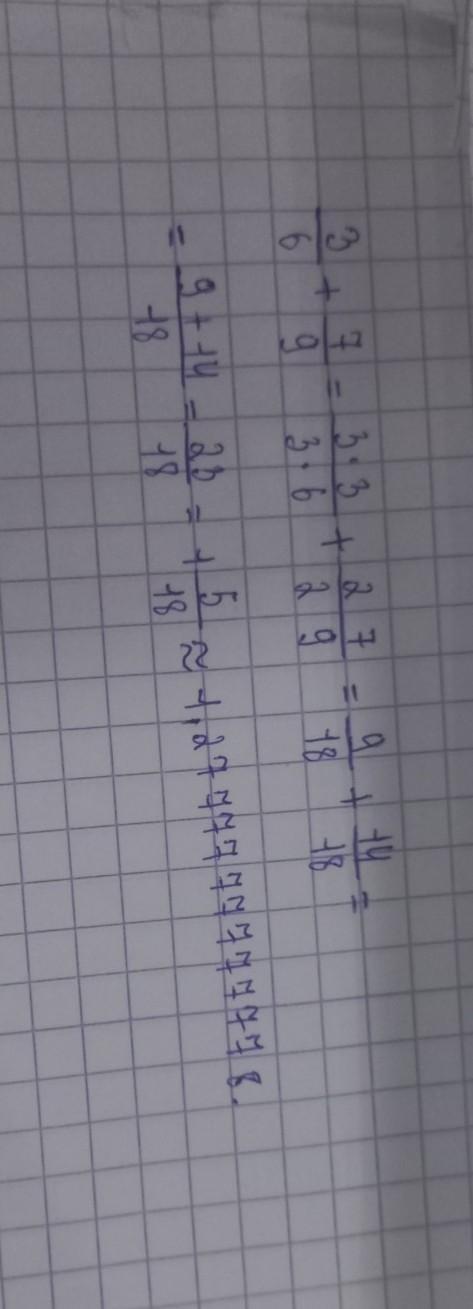 3/6 + 7/9 = 3·3/3·6 + 2 7/2 9 = 9/18 + 14/18 =
= 9+14/18 = 23/18 = 1 5/18 ≈ 1,2777777777778.